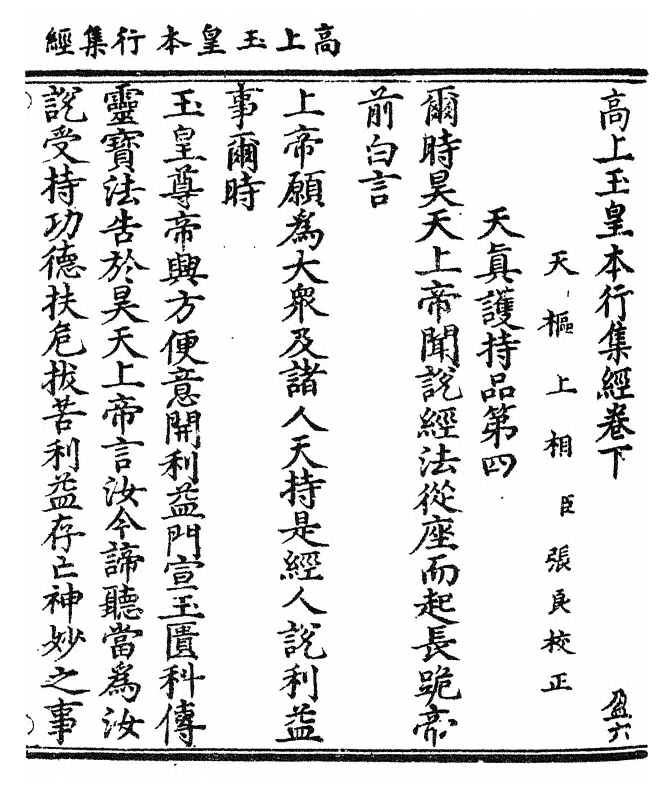 高上玉皇本行集經
高上玉皇本行集經卷下
盈六
天樞上相臣張良校正
天真護持品第四
爾時昊天上帝聞說經法從座而起長跪帝
前白言
上帝願為大眾及諸人天持是經人說利益
事爾時
玉皇尊帝興方便意開利益門宣玉匱科傳
靈寶法告於昊天上帝言汝今諦聽當為汝
說受持功德扶危拔苦利益存亡神妙之事